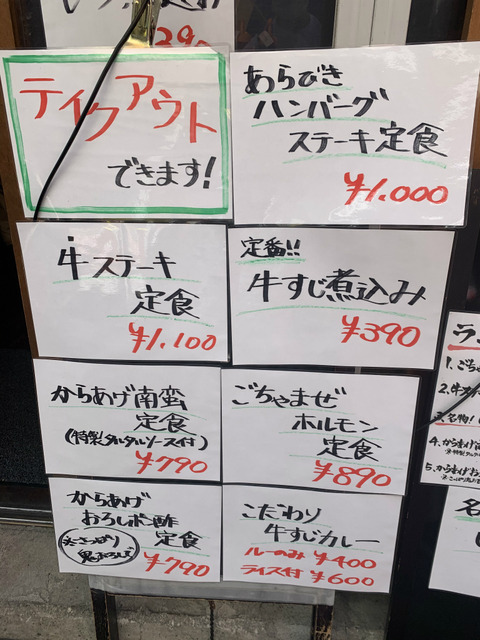 390
テイクアウト
できます!
あらびき
ハンバーグ
ステーキ定食
¥1.000
牛ステーキ
定食
¥1.100
定番!!
牛すじ煮込み
¥390
からあげ南蛮
定食
(特製タルタルソース付)
¥790
ごちゃまぜ
ホルモン
定食
¥890
からあげ
おろしポン酢
定食
※さっぱり
¥790
こだわり
牛すじカレー
ルーのみ ¥400
ライス付 ¥600
1.ごち
2.牛
3.名物!
4.からあげ
5.からあげお
名